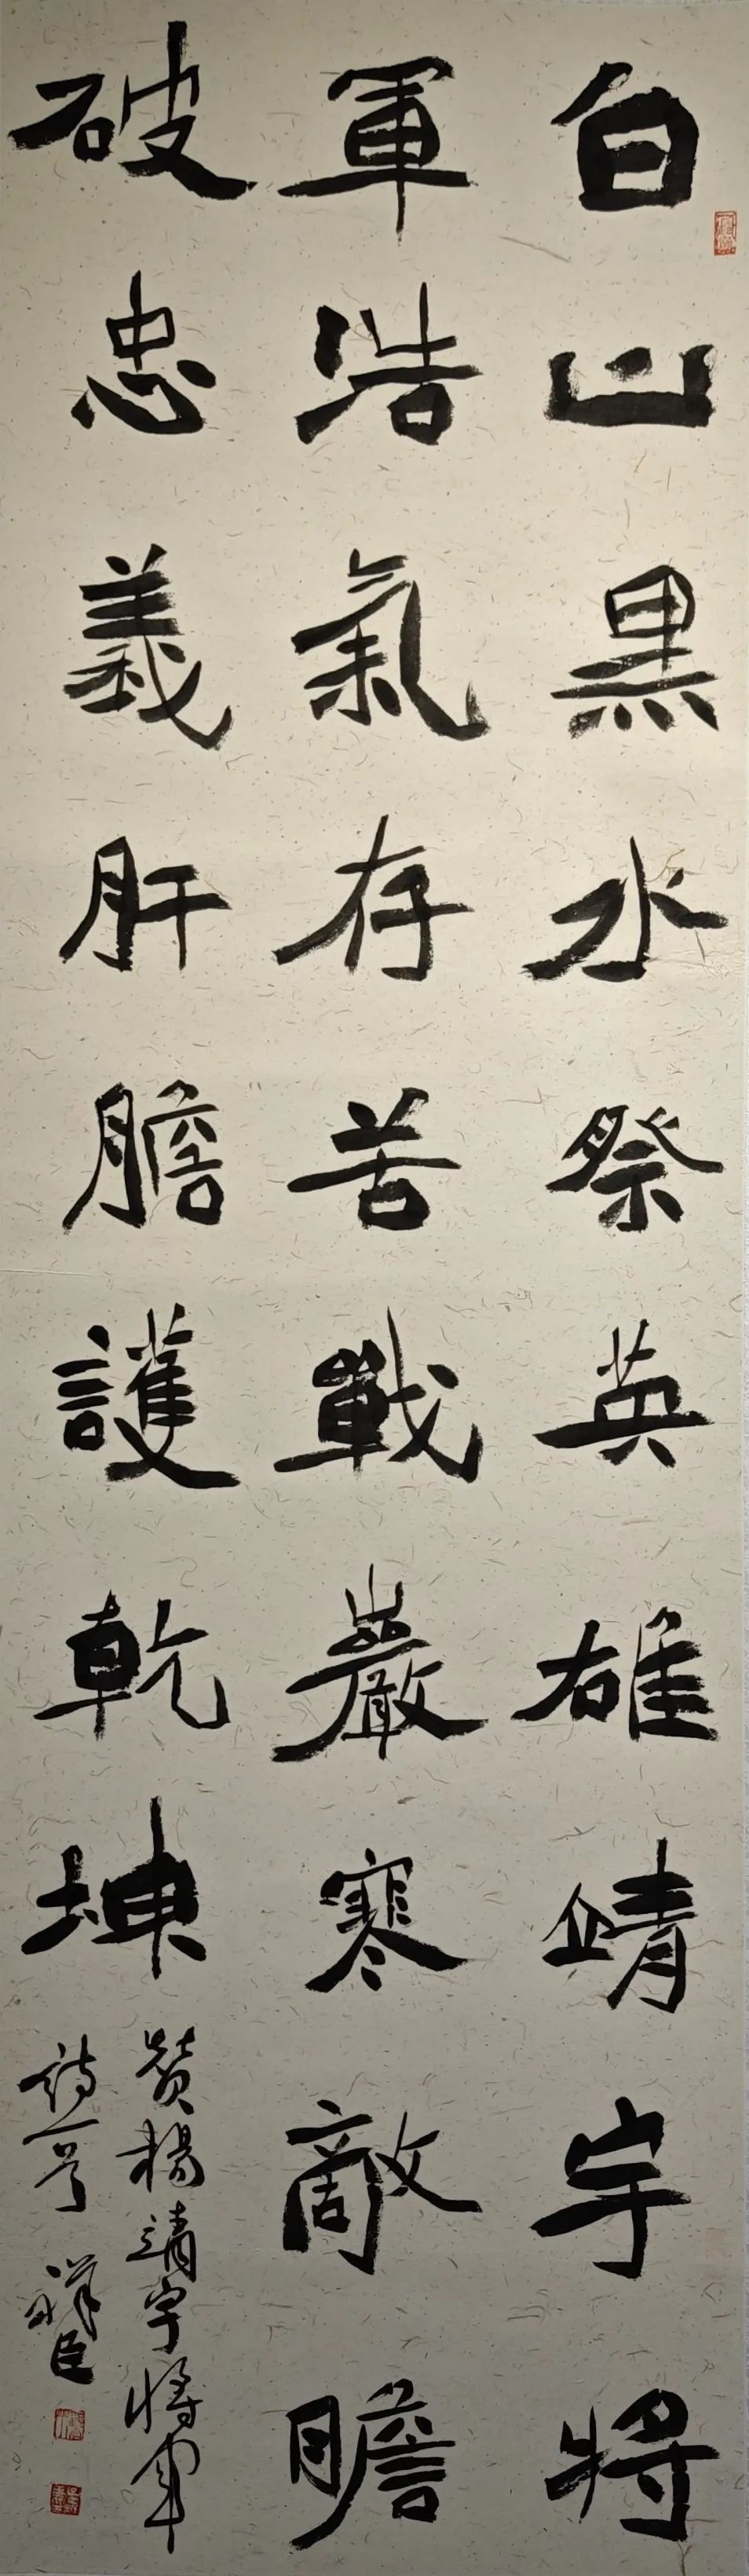 白山黑水祭英雄靖宇将
軍浩氣存苦戰嚴寒敵膽
破忠義肝膽護乾坤
贊楊靖宇將軍
詩一首 祥臣